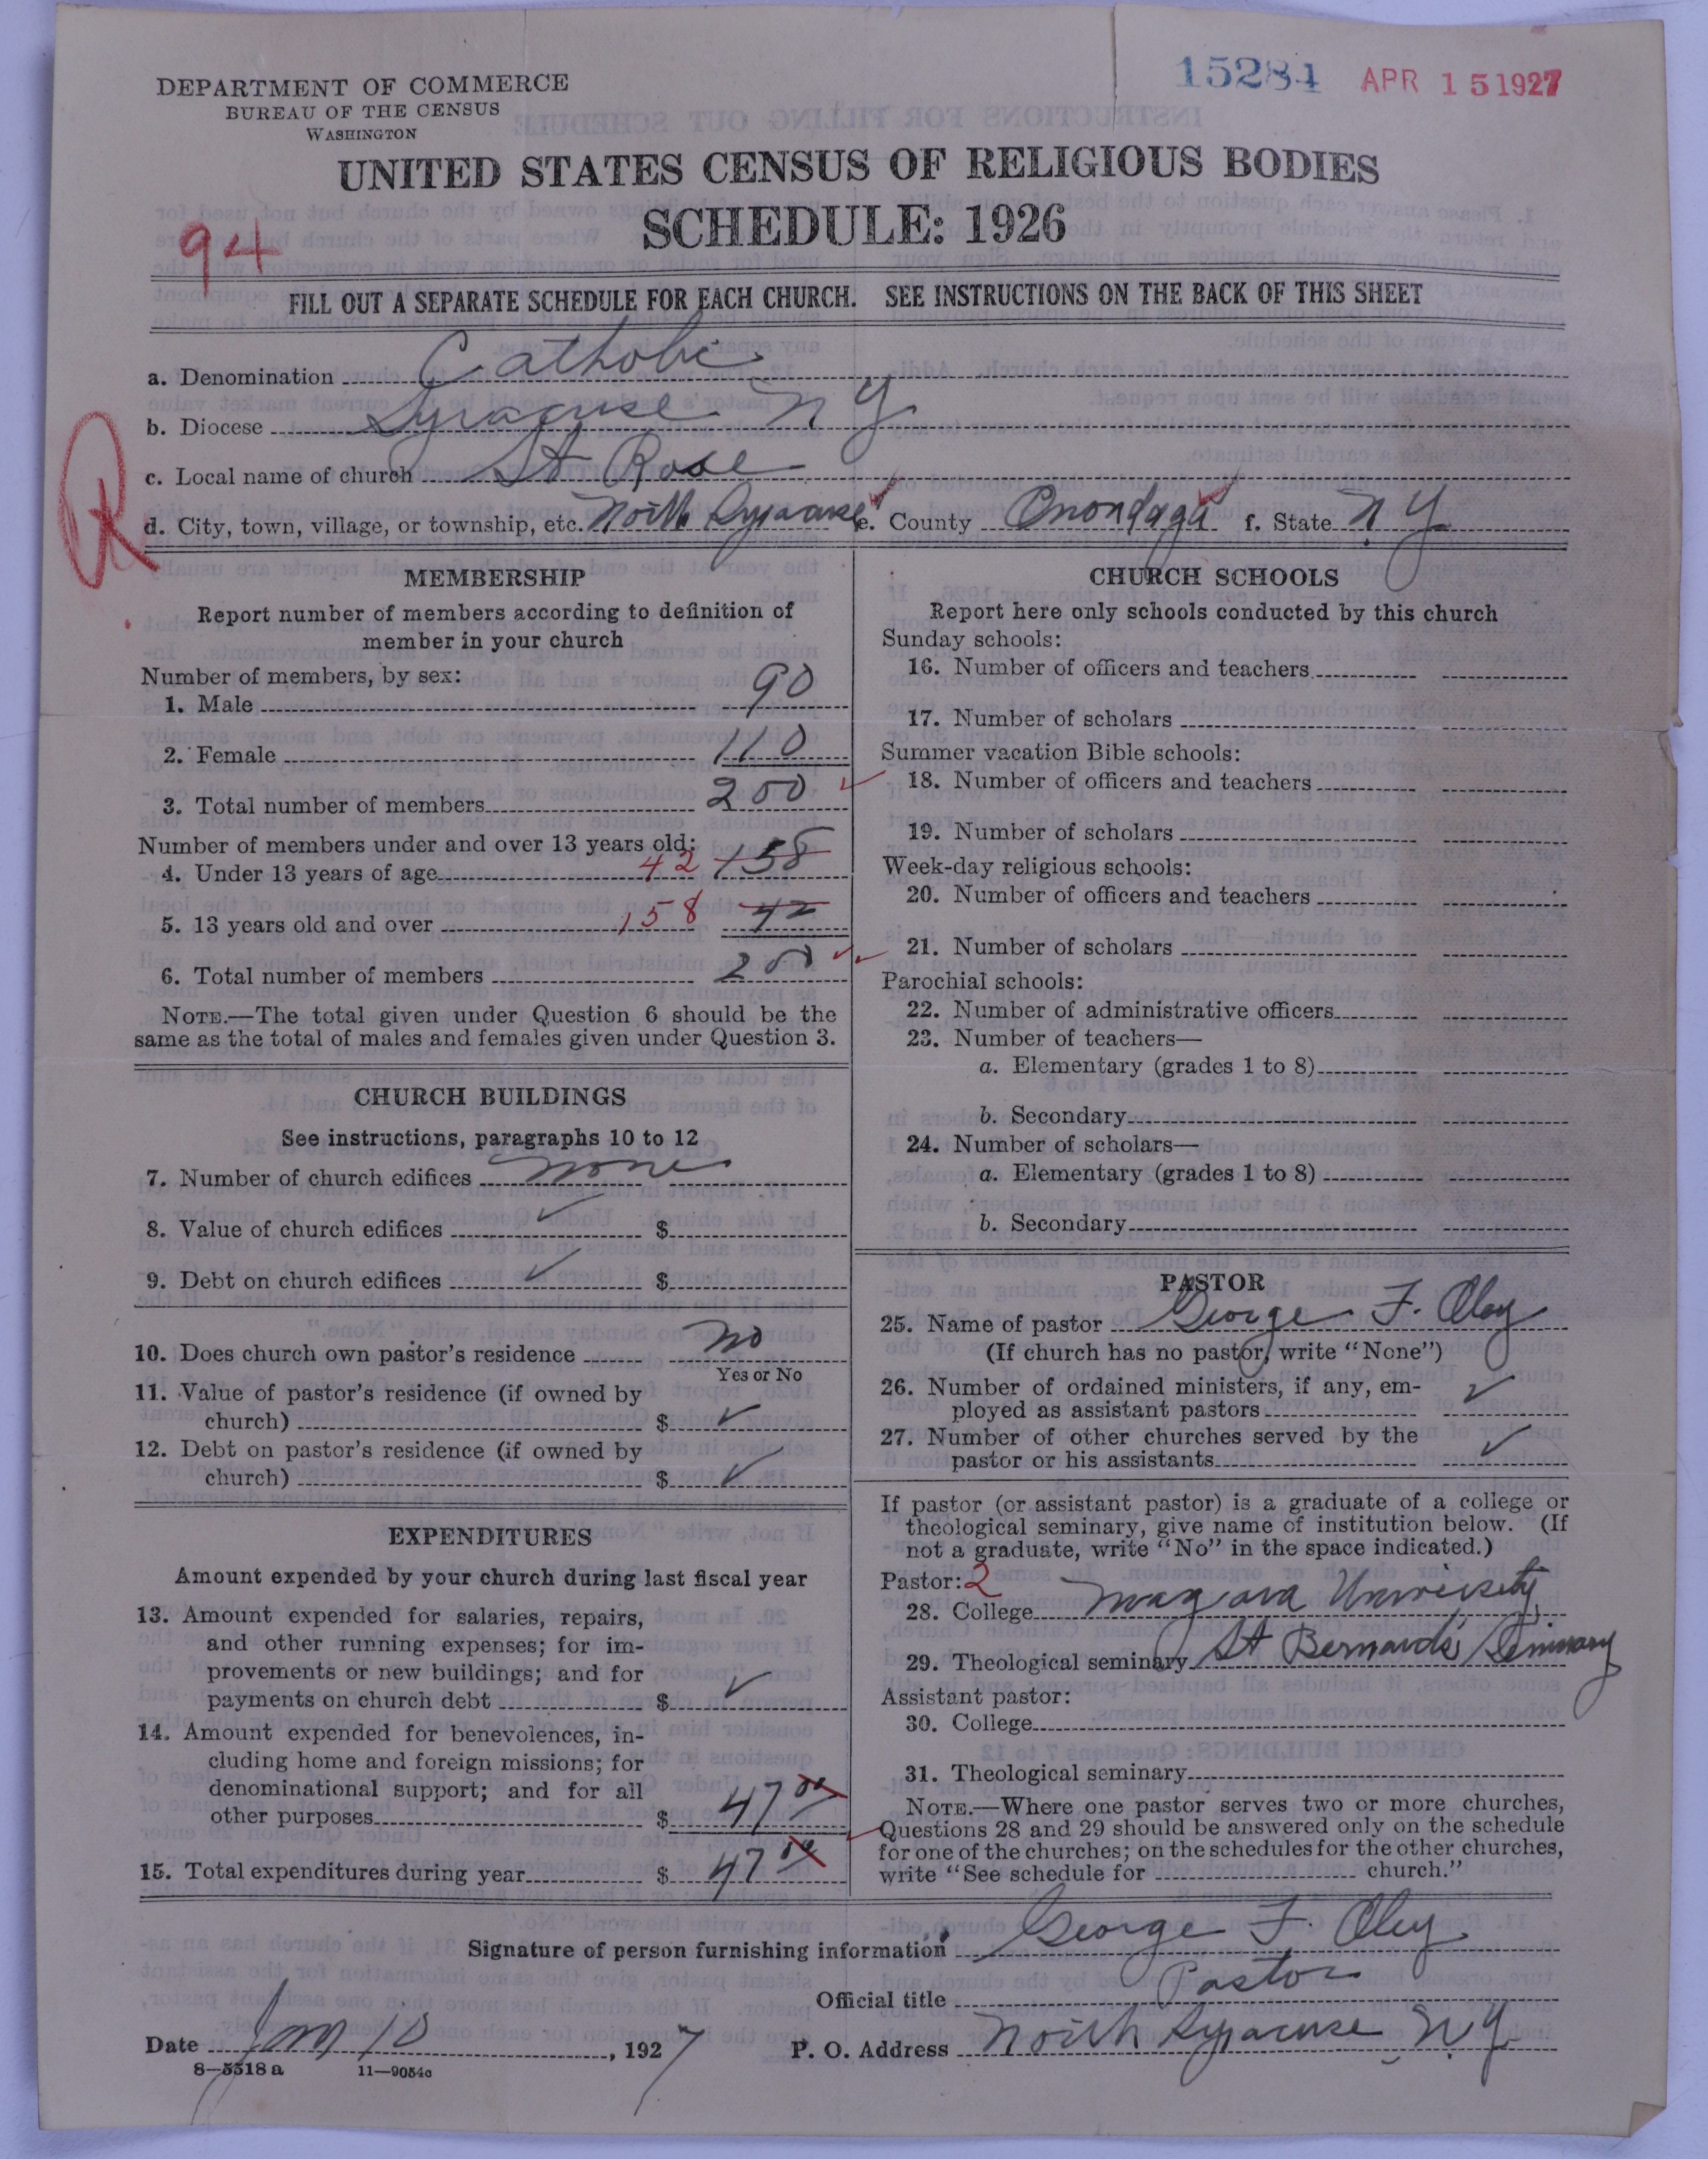 15284 APR 15 1927
DEPARTMENT OF COMMERCE
BUREAU OF THE CENSUS
WASHINGTON
UNITED STATES CENSUS OF RELIGIOUS BODIES
SCHEDULE: 1926
94
FILL OUT A SEPARATE SCHEDULE FOR EACH CHURCH. SEE INSTRUCTIONS ON THE BACK OF THIS SHEET
a. Denomination Catholic
b. Diocese Syracuse N Y
c. Local name of church St Rose
R
d. City, town, village, or township, etc. North Syracuse e. County Onondaga f. State N Y
MEMBERSHIP
Report number of members according to definition of
member in your church
Number of members, by sex:
1. Male 90
2. Female 110
3. Total number of members 200
Number of members under and over 13 years old:
4. Under 13 years of age 42 158
5. 13 years old and over 158 42
6. Total number of members 200
NOTE.—The total given under Question 6 should be the
same as the total of males and females given under Question 3.
CHURCH BUILDINGS
See instructions, paragraphs 10 to 12
7. Number of church edifices none
8. Value of church edifices ✓ $
9. Debt on church edifices ✓ $
10. Does church own pastor's residence no
Yes or No
11. Value of pastor's residence (if owned by
church) $ ✓
12. Debt on pastor's residence (if owned by
church) $ ✓
EXPENDITURES
Amount expended by your church during last fiscal year
13. Amount expended for salaries, repairs,
and other running expenses; for im-
provements or new buildings; and for
payments on church debt $ ✓
14. Amount expended for benevolences, in-
cluding home and foreign missions; for
denominational support; and for all
other purposes $ 47 00
15. Total expenditures during year $ 47 00
CHURCH SCHOOLS
Report here only schools conducted by this church
Sunday schools:
16. Number of officers and teachers
17. Number of scholars
Summer vacation Bible schools:
18. Number of officers and teachers
19. Number of scholars
Week-day religious schools:
20. Number of officers and teachers
21. Number of scholars
Parochial schools:
22. Number of administrative officers
23. Number of teachers—
a. Elementary (grades 1 to 8)
b. Secondary
24. Number of scholars—
a. Elementary (grades 1 to 8)
b. Secondary
PASTOR
25. Name of pastor George F. Oley
(If church has no pastor, write "None")
26. Number of ordained ministers, if any, em-
ployed as assistant pastors ✓
27. Number of other churches served by the
pastor or his assistants ✓
If pastor (or assistant pastor) is a graduate of a college or
theological seminary, give name of institution below. (If
not a graduate, write "No" in the space indicated.)
Pastor: 2
28. College Niagara University
29. Theological seminary St Bernard's Seminary
Assistant pastor:
30. College
31. Theological seminary
NOTE.—Where one pastor serves two or more churches,
Questions 28 and 29 should be answered only on the schedule
for one of the churches; on the schedules for the other churches,
write "See schedule for church."
Signature of person furnishing information George F. Oley
Official title Pastor
Date Jan 10, 1927 P. O. Address North Syracuse N Y
8—5518 a 11—9054c